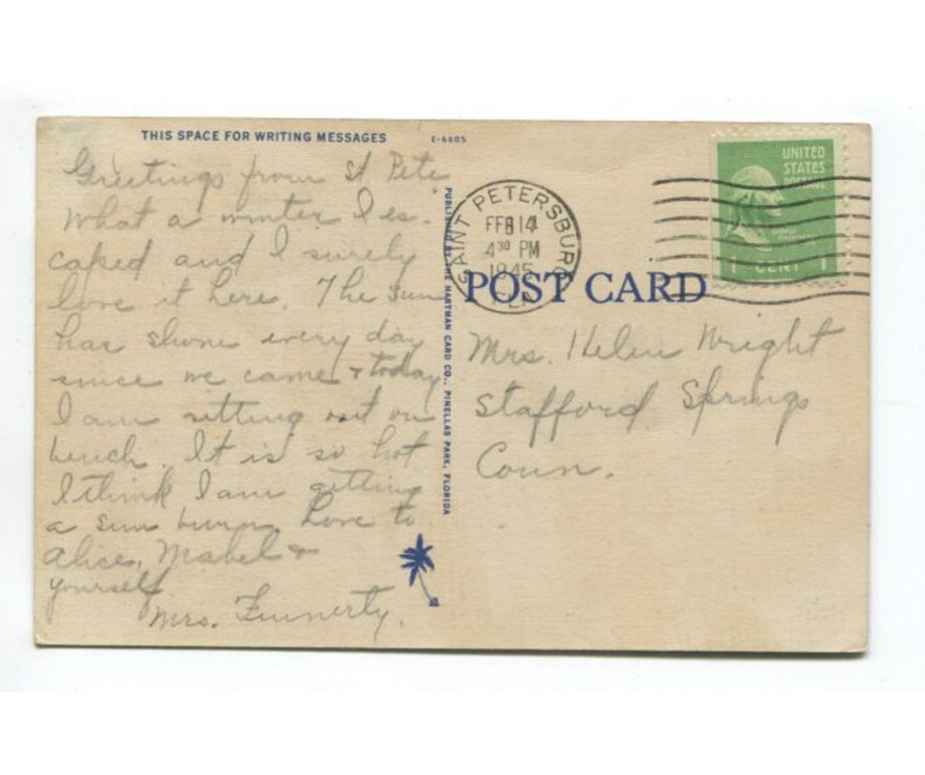 THIS SPACE FOR WRITING MESSAGES
E-6605
Greetings from St Pete
What a winter I es-
caped and I surely
love it here. The sun
has shone every day
since we came + today
I am sitting out on
bench. It is so hot
I think I am getting
a sun burn. Love to
Alice, Mabel +
yourself
Mrs. Finnerty.
MARTMAN CARD CO., PINELLAS PARK, FLORIDA
SAINT PETERSBURG
FEB 14
4 30 PM
1945
UNITED
STATES
POSTAGE
1 CENT 1
POST CARD
Mrs. Helen Wright
Stafford Springs
Conn.